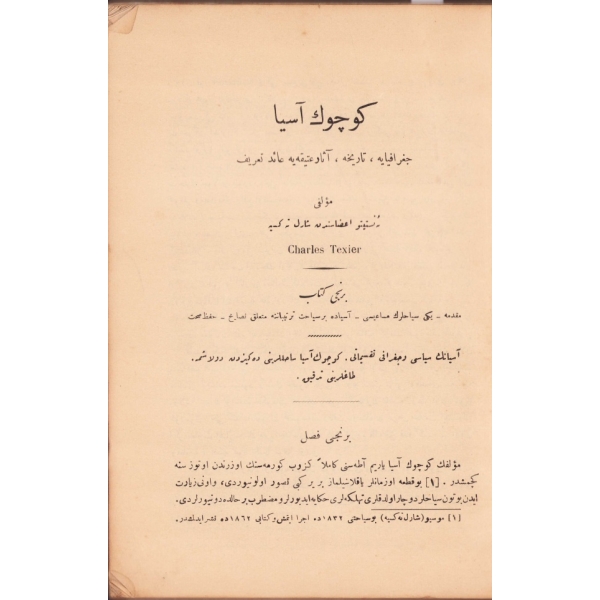 كوچوك آسيا
جغرافيايه ، تاريخه ، آثار عتيقه‌يه عائد تعريف
مؤلفى
اعضاسندن شارل تكسيه
Charles Texier
برنجى كتاب
مقدمه ـ يكى سياحلرك مساعيسى ـ آسياده بر سياحت ترتيباتنه متعلق نصايح ـ حفظ صحت
آسيانك سياسى و جغرافى تقسيماتى . كوچوك آسيا ساحللرينى دكيزدن دولاشمه .
طاغلرينى تدقيق .
برنجى فصل
مؤلفك كوچوك آسيا ياريم آطه‌سنى كاملاً كزوب كورمه‌سنك اوزرندن اوتوز سنه
كچمشدر . [١] بو قطعه اوزمانلر ياقلاشيلماز بر ير كبى تصور اولونيوردى ، واونى زيارت
ايدن بوتون سياحلر دوچار اولدقلرى تهلكه‌لرى حكايه ايديورلر و مضطرب بر حالده دونيورلردى .
[١] موسيو (شارل تكسيه) بو سياحتى ١٨٣٢ ده اجرا ايتمش و كتابى ١٨٦٢ ده نشر ايلمكدر .